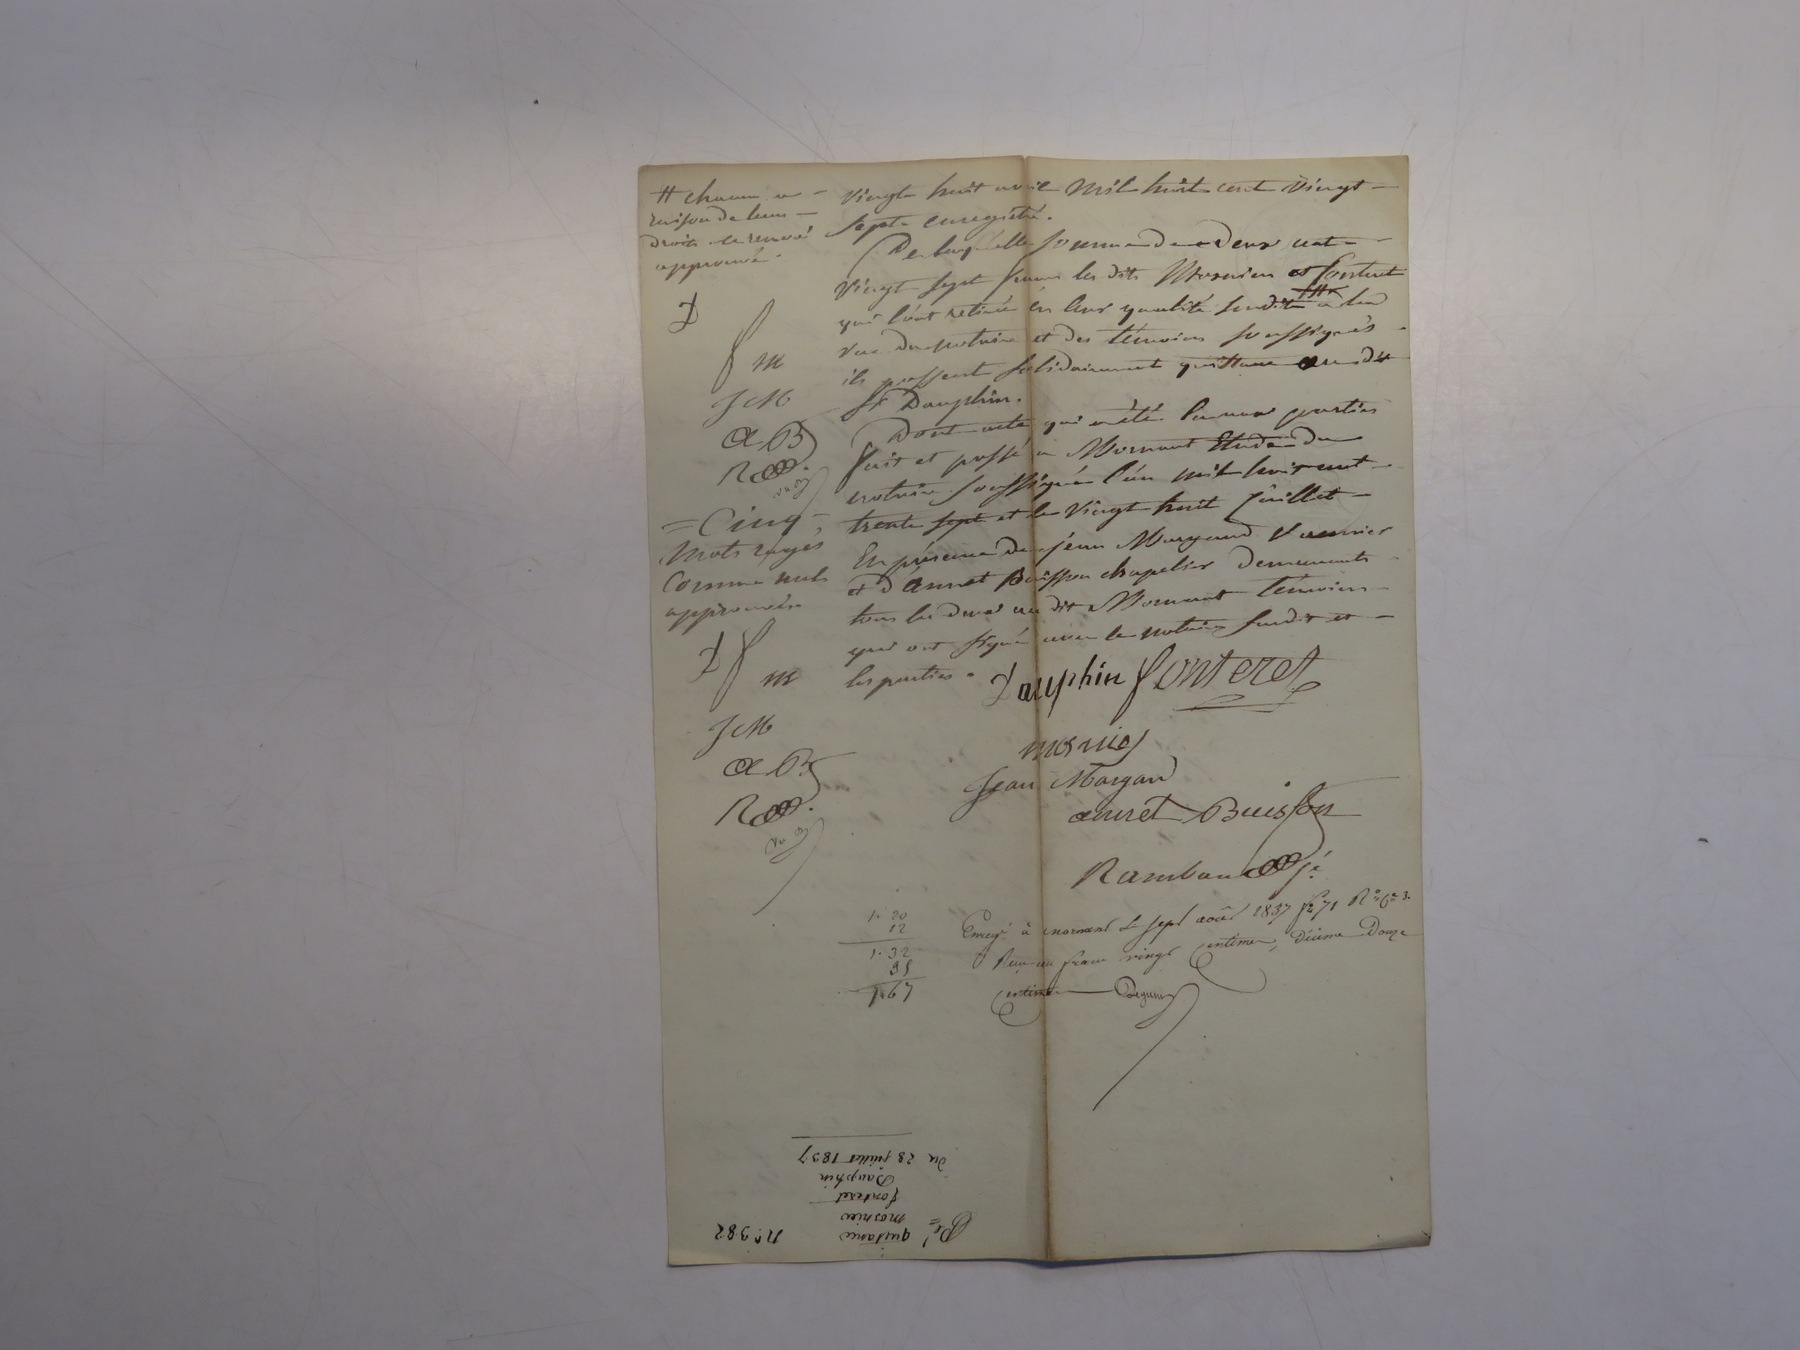 # chacun a
raison de leur
droits ce renvoi
approuvé.
D
f m
J M
A B
R
= Cinq
mots rayés
comme nuls
approuvés
D f
m
J M
A B
R
vingt huit avril mil huit cent vingt
sept enregistré.
De laquelle somme de deux cent
vingt sept francs les dits Mosnier et Fonteret
qui l'ont retirée en leur qualité susdite #  a leu
vue du notaire et des témoins soussignés
ils passent solidairement quittance au dit
Sr Dauphin.
Dont acte qui a été lu aux parties
fait et passé à Mornant Etude du
notaire soussigné l'an mil huit cent
trente sept et le vingt huit juillet
En présence de jean Margand
et d'annet Buisson chapelier demeurants
tous les deux au dit Mornant témoins
qui ont signé avec le notaire susdit et
les parties.
Dauphin fonteret
mosnier
Jean Margand
annet Buisson
Rambaud
1. 20
12
1. 32
35
1. 67
Enregé à mornant le sept août 1837 fo 71 Ro Ce 3.
Reçu un franc vingt centimes, décime Douze
centimes
du 28 juillet 1837
Dauphin
fonteret
mosnier
quitance
No 382